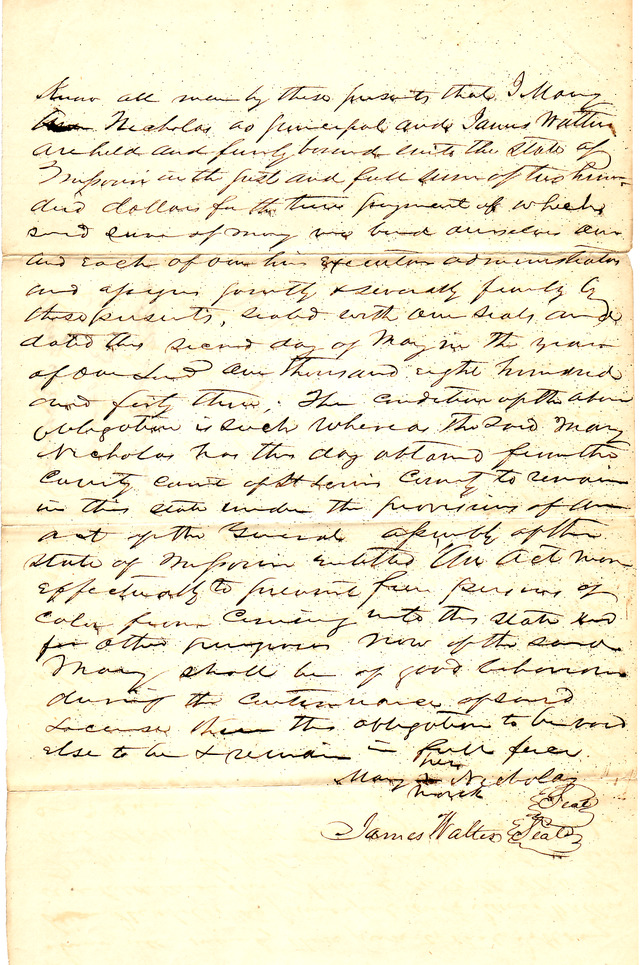 Know all men by these presents that I Mary
Nicholas as principal and James Walter
are held and firmly bound unto the state of
Missouri in the just and full sum of two hun-
dred dollars for the true payment of which
said sum of money we bind ourselves our
and each of our his executors administrators
and assigns jointly & severally firmly by
these presents, sealed with our seals and
dated this second day of May in the year
of our Lord one thousand eight hundred
and forty three, The condition of the above
obligation is such whereas the said Mary
Nicholas has this day obtained from the
County court of St Louis County to remain
in this state under the provisions of an
act of the General Assembly of the
state of Missouri entitled "An Act more
effectually to prevent free persons of
color from coming into this state and
for other purposes Now if the said
Mary shall be of good behavior
during the continuance of said
License then this obligation to be void
else to be & remain in full force
her
Mary x Nicholas
mark Seal
James Walter Seal